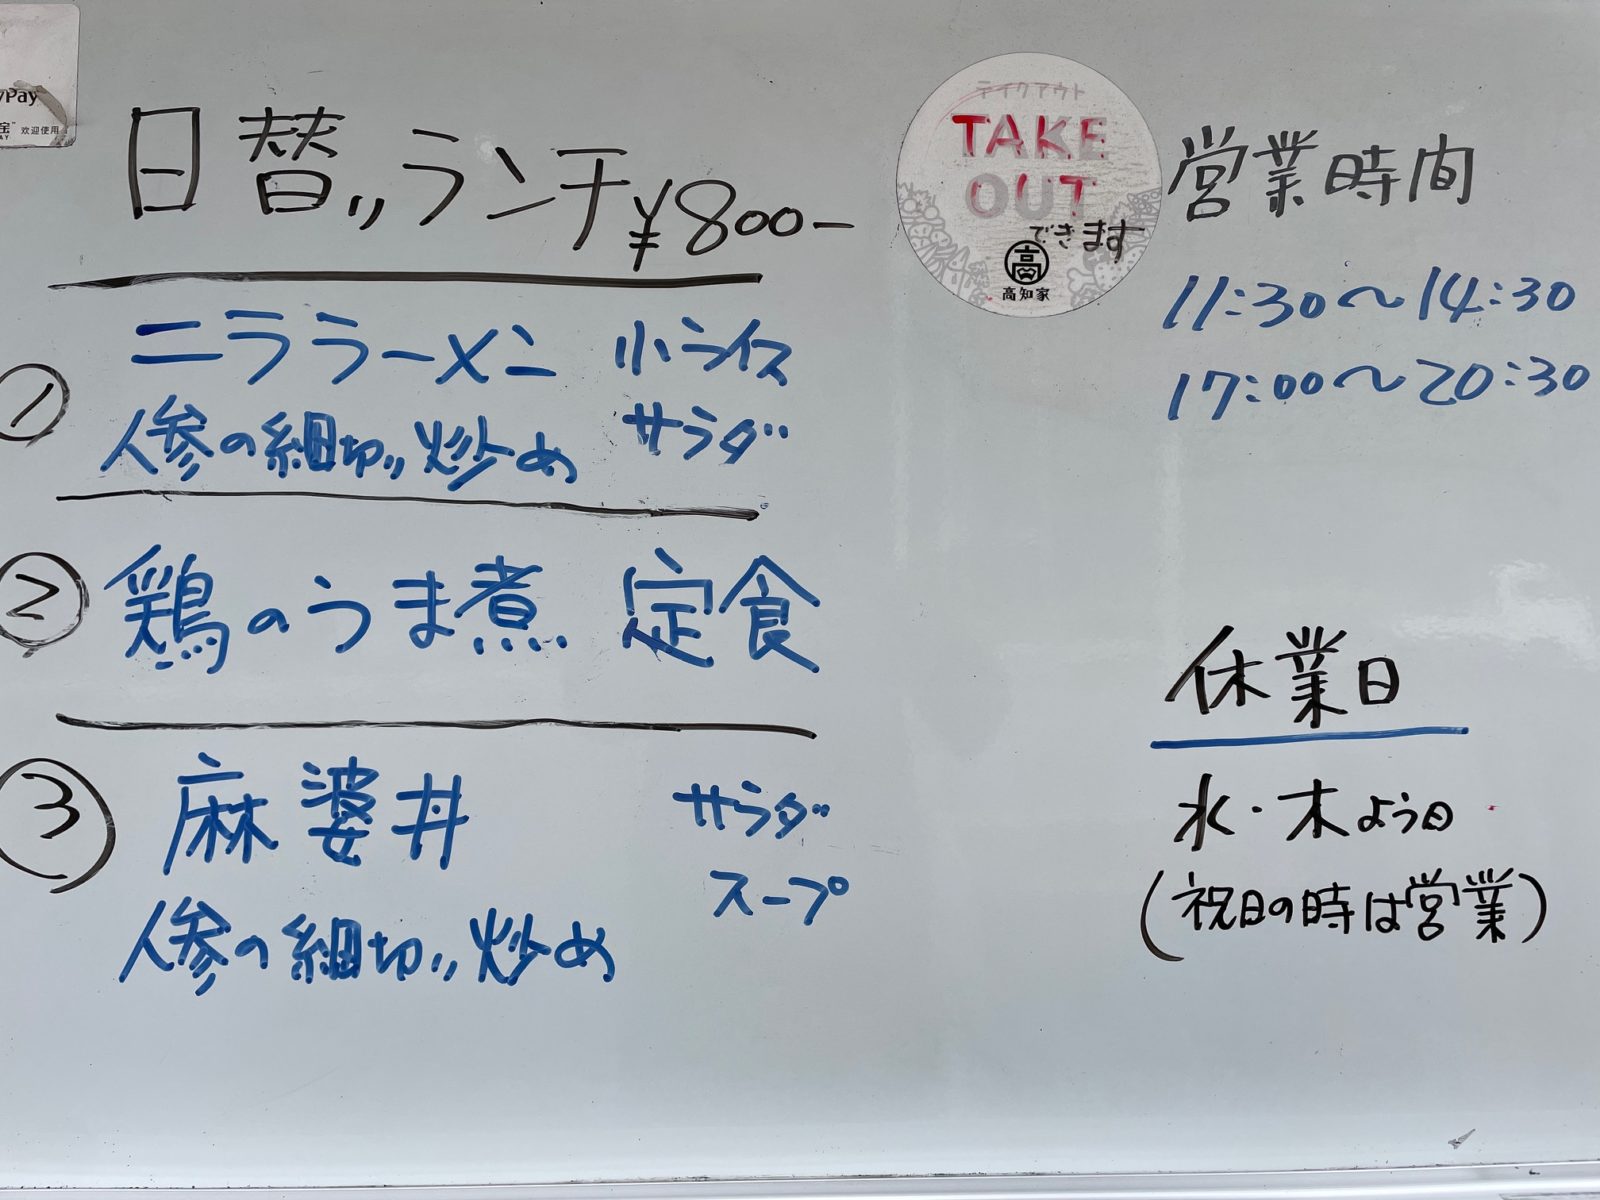 Pay
欢迎使用
日替り ランチ ¥800-
① ニララーメン 小ライス
人参の細切り炒め サラダ
② 鶏のうま煮 定食
③ 麻婆丼 サラダ
スープ
人参の細切り炒め
テイクアウト
TAKE
OUT
できます
高
高知家
営業時間
11:30〜14:30
17:00〜20:30
休業日
水・木よう日
(祝日の時は営業)